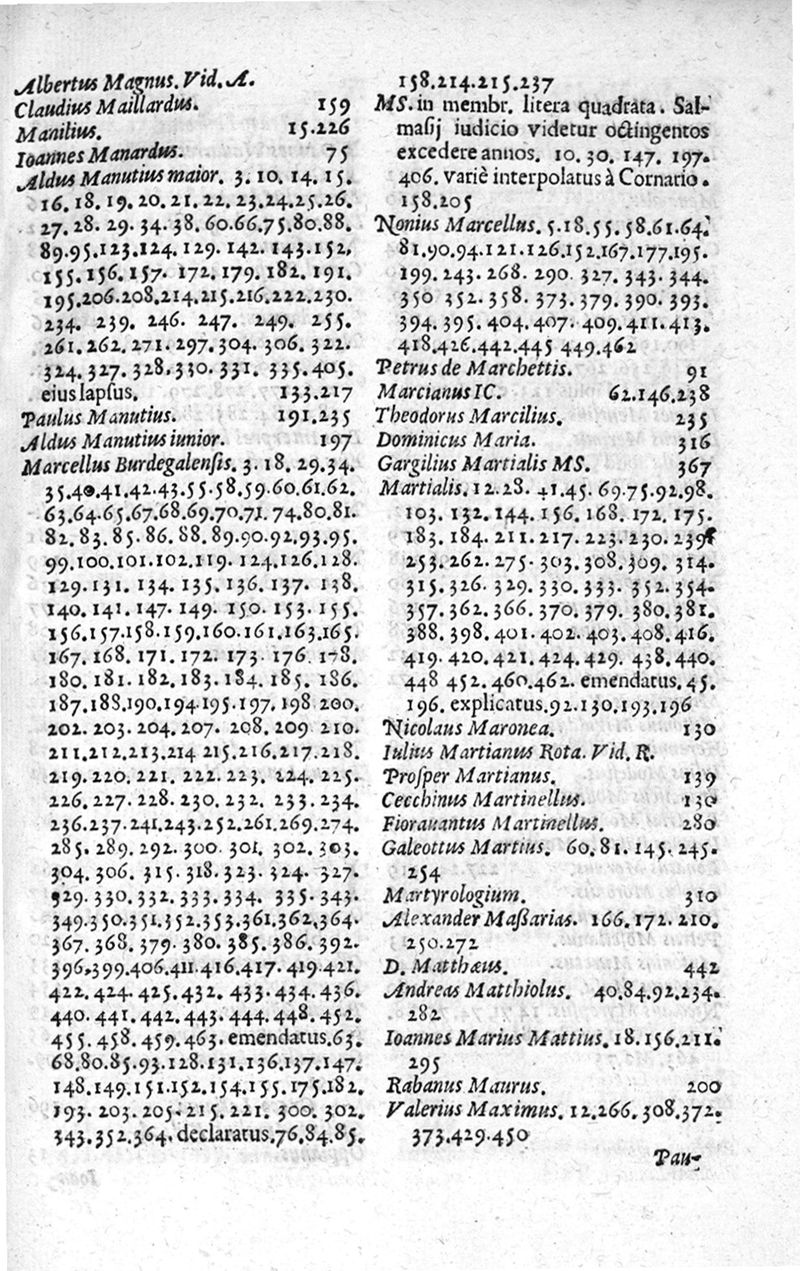 Albertus Magnus. Vid. A.
Claudius Maillardus. 159
Manilius. 15.226
Ioannes Manardus. 75
Aldus Manutius maior. 3. 10. 14. 15.
16. 18. 19. 20. 21. 22. 23.24.25.26.
27. 28. 29. 34. 38. 60.66.75.80.88.
89.95.123.124. 129. 142. 143.152.
155.156. 157. 172. 179. 182. 191.
195.206.208.214.215.216.222.230.
234. 239. 246. 247. 249. 255.
261.262.271.297.304. 306. 322.
324.327. 328.330. 331. 335.405.
eius lapsus. 133.217
Paulus Manutius. 191.235
Aldus Manutius iunior. 197
Marcellus Burdegalensis. 3. 18. 29.34.
35.40.41.42.43.55.58.59.60.61.62.
63.64.65.67.68.69.70.71. 74.80.81.
82. 83.85.86.88.89.90.92.93.95.
99.100.101.102.119. 124.126.128.
129.131. 134. 135. 136. 137. 138.
140. 141. 147. 149. 150. 153. 155.
156.157.158.159.160.161.163.165.
167. 168. 171. 172. 173. 176. 178.
180. 181. 182. 183. 184. 185. 186.
187.188.190.194.195.197. 198 200.
202. 203. 204. 207. 208. 209 210.
211.212.213.214 215.216.217.218.
219. 220. 221. 222. 223. 224. 225.
226. 227. 228. 230. 232. 233. 234.
236.237.241.243.252.261.269.274.
285. 289. 292. 300. 301. 302. 303.
304. 306. 315. 318.323. 324. 327.
329. 330. 332. 333. 334. 335. 343.
349.350.351.352.353.361.362.364.
367. 368. 379. 380. 385. 386. 392.
396.399.406.411.416.417. 419.421.
422. 424. 425. 432. 433. 434. 436.
440. 441. 442. 443. 444. 448. 452.
455. 458. 459. 463. emendatus.63.
68.80.85.93.128.131.136.137.147.
148.149.151.152.154.155.175.182.
193. 203. 205. 215. 221. 300. 302.
343.352.364. declaratus.76.84.85.
158.214.215.237
MS. in membr. litera quadrata. Sal-
masij iudicio videtur octingentos
excedere annos. 10. 30. 147. 197.
406. variè interpolatus à Cornario.
158.205
Nonius Marcellus. 5.18.55. 58.61.64.
81.90.94.121.126.152.167.177.195.
199. 243. 268. 290. 327. 343. 344.
350 352. 358. 373. 379. 390. 393.
394. 395. 404. 407. 409.411.413.
418.426.442.445 449.462
Petrus de Marchettis. 91
Marcianus IC. 62.146.238
Theodorus Marcilius. 235
Dominicus Maria. 316
Gargilius Martialis MS. 367
Martialis. 12.28. 41.45. 69.75.92.98.
103. 132. 144. 156. 168. 172. 175.
183. 184. 211. 217. 223. 230. 239
253.262. 275. 303. 308. 309. 314.
315.326. 329. 330. 333. 352. 354.
357. 362. 366. 370. 379. 380. 381.
388. 398. 401. 402. 403. 408. 416.
419. 420. 421. 424. 429. 438. 440.
448 452. 460.462. emendatus. 45.
196. explicatus.92.130.193.196
Nicolaus Maronea. 130
Iulius Martianus Rota. Vid. R.
Prosper Martianus. 139
Cecchinus Martinellus. 130
Fiorauantus Martinellus. 280
Galeottus Martius. 60.81. 145. 245.
254
Martyrologium. 310
Alexander Maßarias. 166.172. 210.
250.272
D. Matthæus. 442
Andreas Matthiolus. 40.84.92.234.
282
Ioannes Marius Mattius. 18.156.211.
295
Rabanus Maurus. 200
Valerius Maximus. 12.266. 308.372.
373.429.450
Pau-